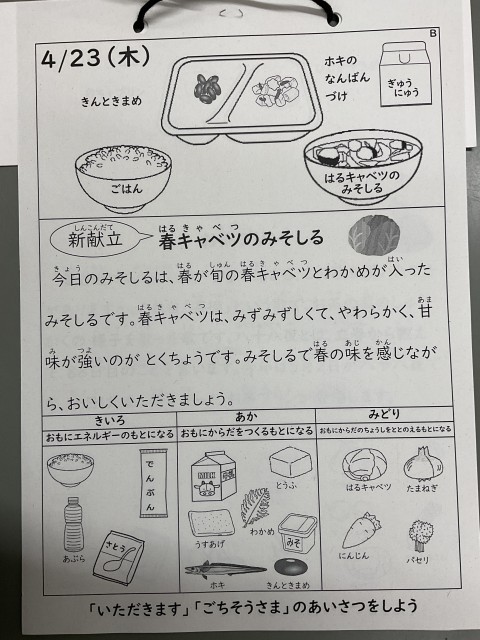 B
4/23(木)
きんときまめ
ホキの
なんばん
づけ
ぎゅう
にゅう
ごはん
はるキャベツの
みそしる
しんこんだて
はるきゃべつ
新献立
春キャベツのみそしる
きょう はる しゅん はるきゃべつ はい
今日のみそしるは、春が旬の春キャベツとわかめが入った
はるきゃべつ あま
みそしるです。春キャベツは、みずみずしくて、やわらかく、甘
み つよ はる あじ かん
味が強いのが とくちょうです。みそしるで春の味を感じなが
ら、おいしくいただきましょう。
きいろ
おもにエネルギーのもとになる
でんぷん
あぶら
さとう
あか
おもにからだをつくるもとになる
MILK
とうふ
わかめ
うすあげ
みそ
ホキ
きんときまめ
みどり
おもにからだのちょうしをととのえるもとになる
はるキャベツ
たまねぎ
にんじん
パセリ
「いただきます」「ごちそうさま」のあいさつをしよう